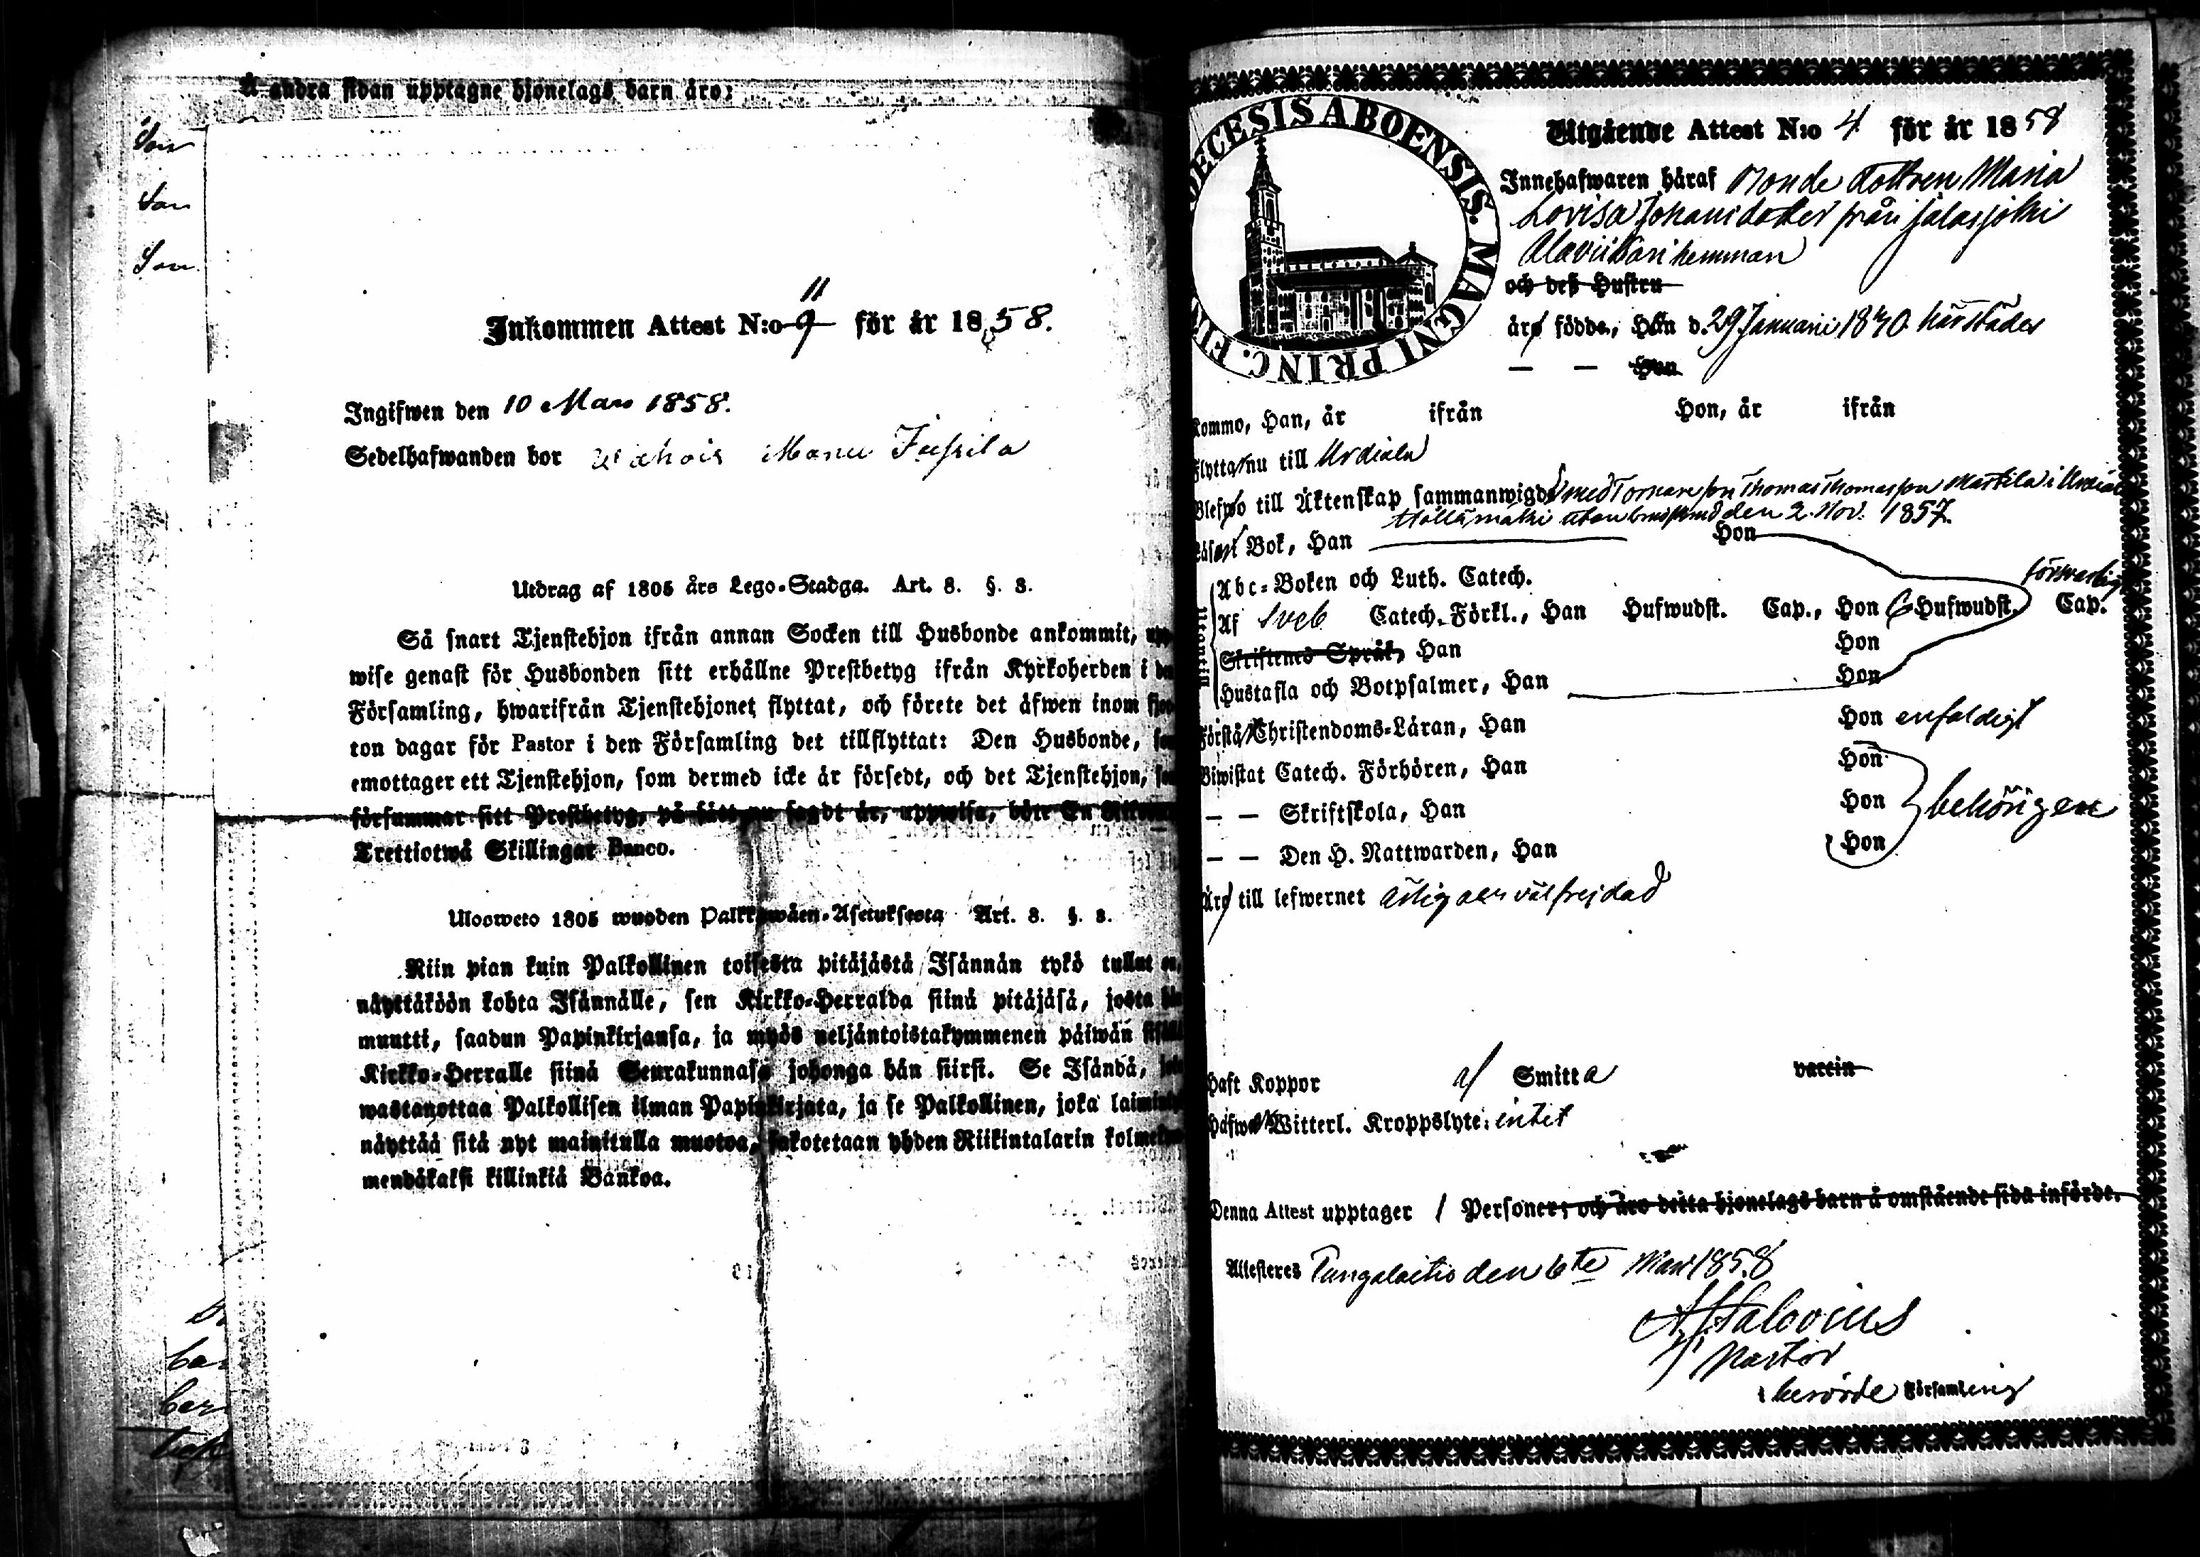 Å andra sidan upptagne hjonelags barn äro:
Son
Son
Son
Inkommen Attest N:o 9 11 för år 1858.
Ingifwen den 10 Mars 1858.
Sedelhafwanden bor
Utdrag af 1805 års Lego-Stadga. Art. 8. §. 3.
Så snart Tjenstehjon ifrån annan Socken till Husbonde ankommit, upp-
wise genast för Husbonden sitt erhållne Prestbetyg ifrån Kyrkoherden i den
Församling, hwarifrån Tjenstehjonet flyttat, och förete det äfwen inom fjor-
ton dagar för Pastor i den Församling det tillflyttat: Den Husbonde, som
emottager ett Tjenstehjon, som dermed icke är försedt, och det Tjenstehjon, som
försummar sitt Prestbetyg, på sätt nu sagdt är, uppwisa, böte En Riksdaler
Trettiotwå Skillingar Banco.
Ulosweto 1805 wuoden Palkkawäen-Asetuksesta Art. 8. §. 3.
Niin pian kuin Palkollinen toisesta pitäjästä Isännän tykö tullut on,
näyttäköön kohta Isännälle, sen Kirkko-Herralda siinä pitäjäsä, josta hän
muutti, saadun Papinkirjansa, ja myös neljäntoistakymmenen päiwän sisällä
Kirkko-Herralle siinä Seurakunnasa johonga hän siirsi. Se Isändä, joka
wastanottaa Palkollisen ilman Papinkirjata, ja se Palkollinen, joka laiminlyö
näyttää sitä nyt mainitulla muotoa, sakotetaan yhden Riikintalarin kolmekym-
mendäkaksi killinkiä Bankoa.
DECESIS ABOENSIS. MAGNI PRINC. FIN
Utgående Attest N:o 4 för år 1858
Innehafwaren häraf Bonde dottren Maria
Lovisa Johansdotter från Jalasjoki
hemman
och deß Hustru
äro födde, Hon d. 29 Januari 1840 härstädes
— — Hon
Kommo, Han, år ifrån Hon, år ifrån
Flytta nu till Urdiala
Blefwo till Äktenskap sammanwigde med Torpare son Thomas Thomasson Marttila i Urdiala
den 2. Nov. 1857.
Läsa i Bok, Han Hon
Abc-Boken och Luth. Catech.
Af Sveb Catech. Förkl., Han Hufwudst. Cap., Hon 6 Hufwudst. försvarlig Cap.
Skriftenes Språk, Han Hon
Hustafla och Botpsalmer, Han Hon
Förstå Christendoms-Läran, Han Hon enfaldigt
Biwistat Catech. Förhören, Han Hon
— — Skriftskola, Han Hon behörigen
— — Den H. Nattwarden, Han Hon
Äro till lefwernet ärlig och välfrejdad
Haft Koppor af Smitta vaccin
Häfwa Witterl. Kroppslyte: intet
Denna Attest upptager 1 Personer; och äro detta hjonelags barn å omstående sida införde.
Attesteras Pungalaitio den 6te Mars 1858
Pastor
i berörde Församling